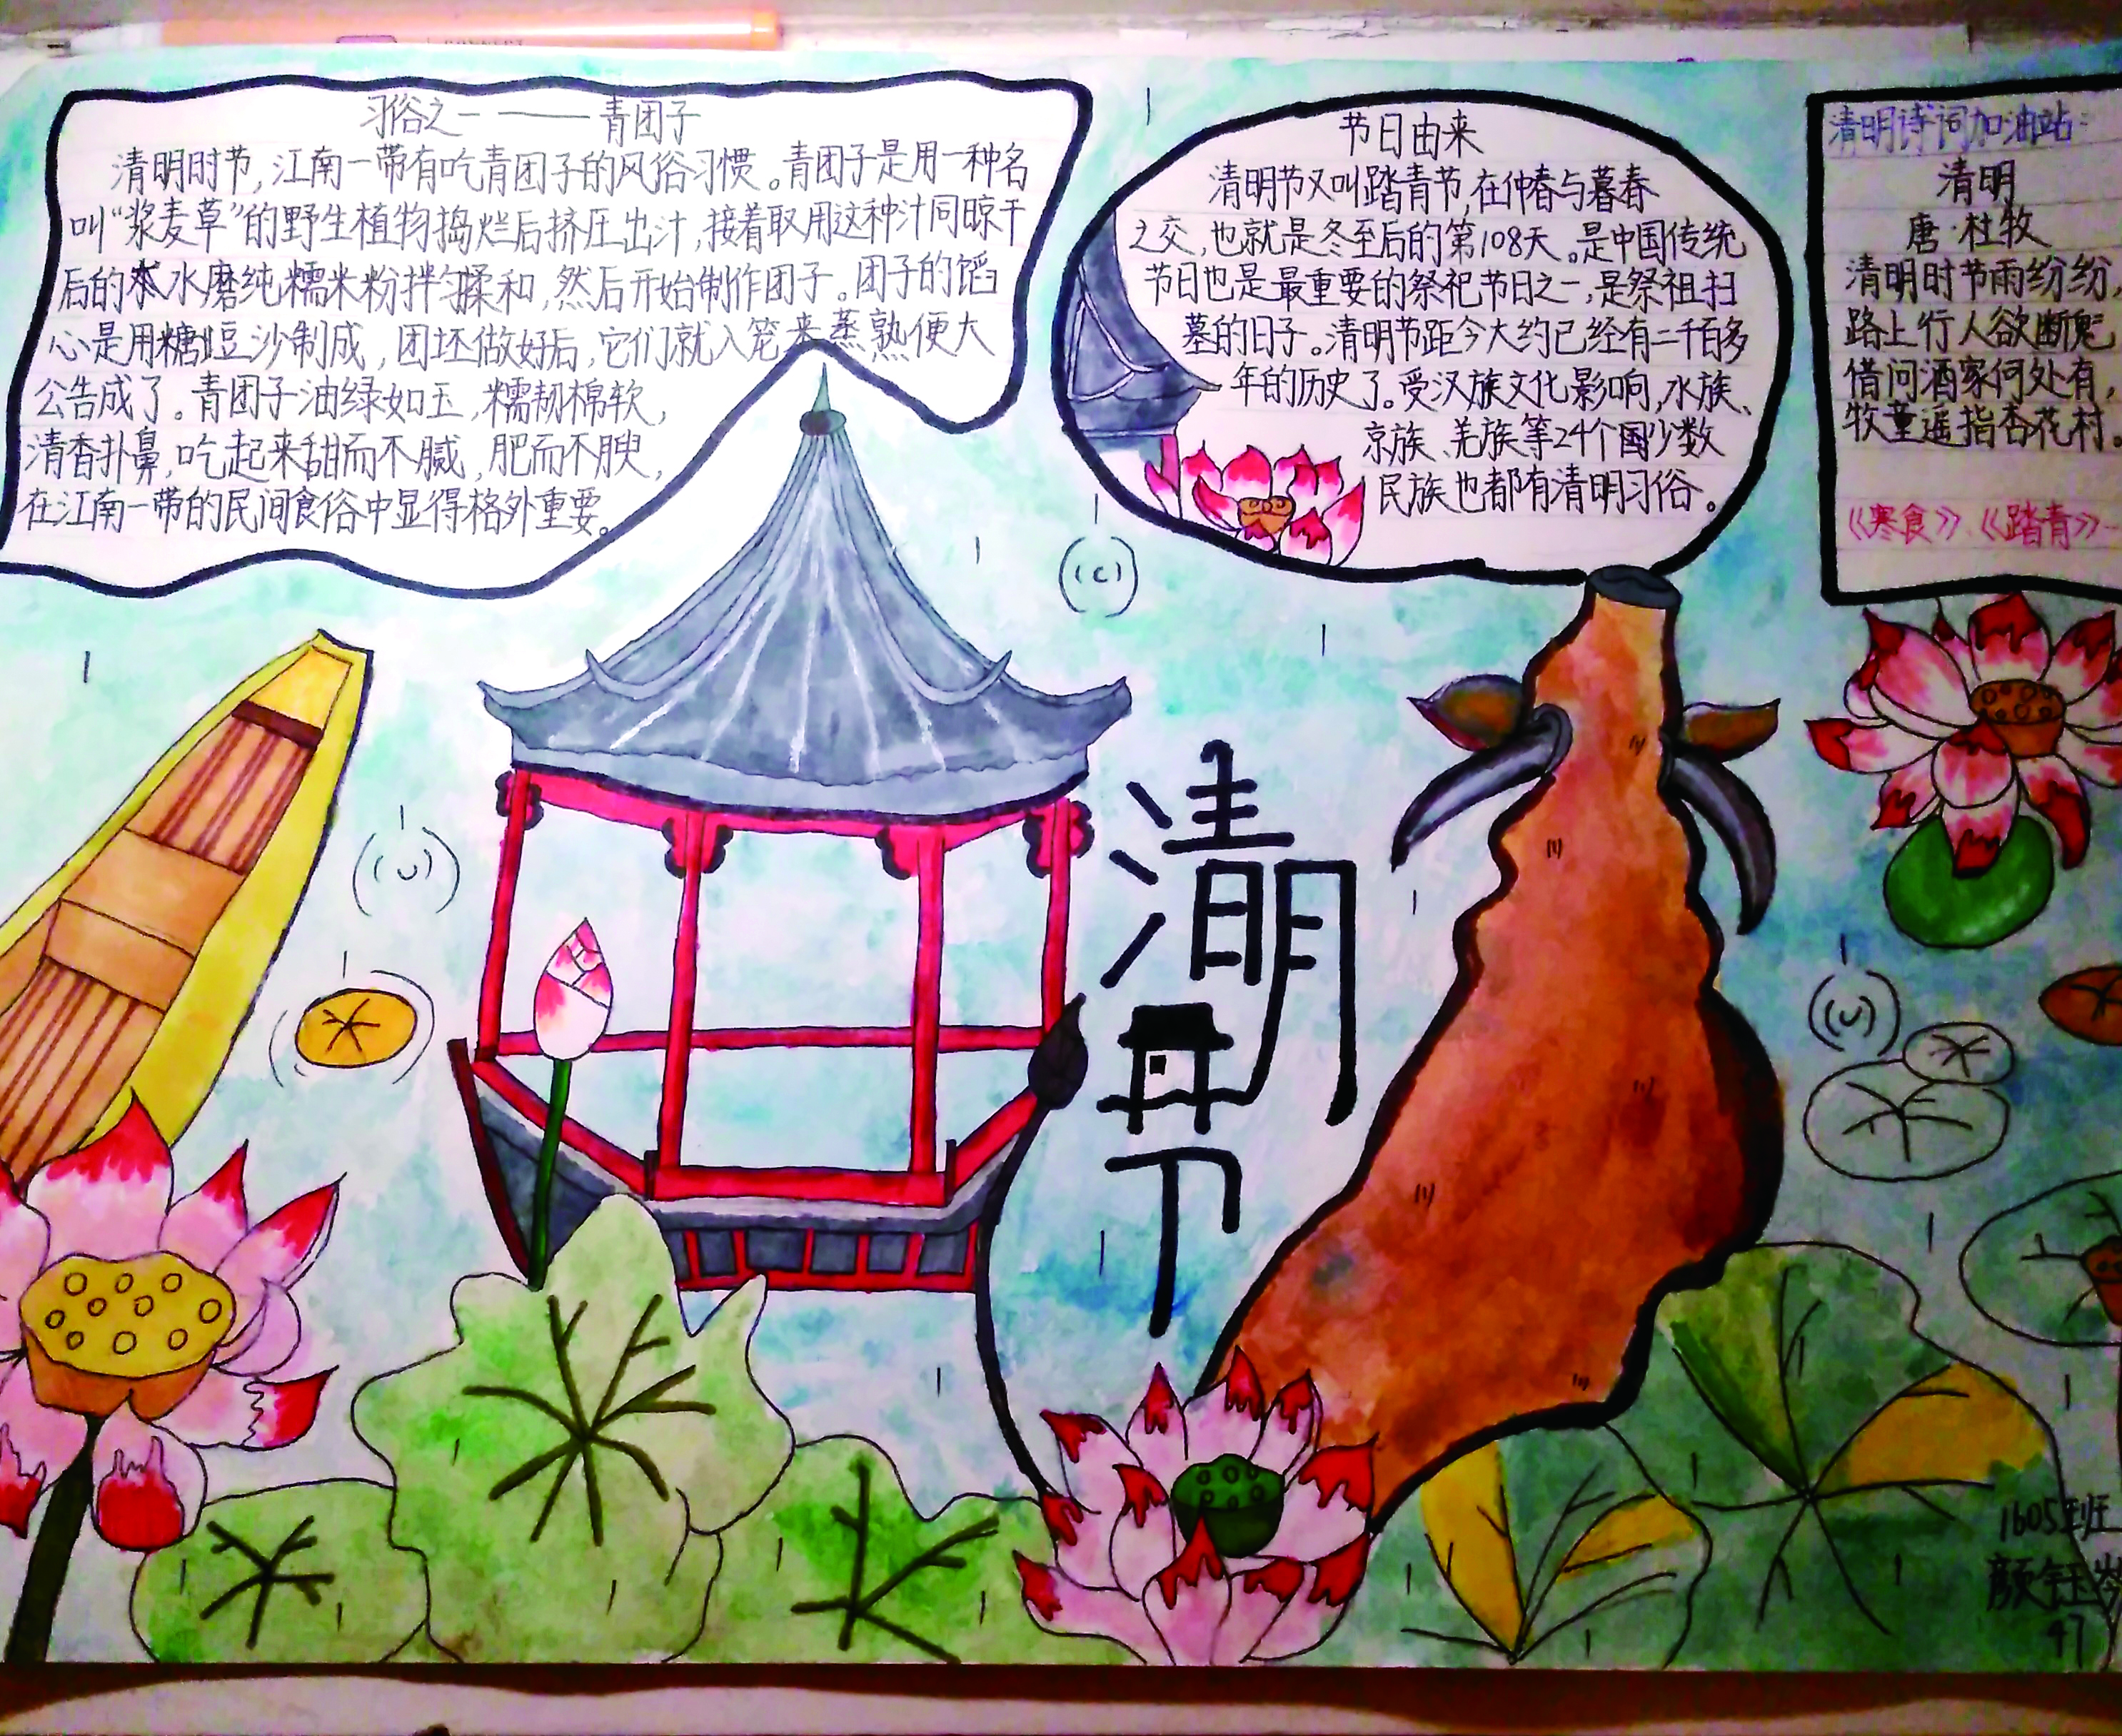 习俗之一——青团子
清明时节,江南一带有吃青团子的风俗习惯。青团子是用一种名
叫“浆麦草”的野生植物捣烂后挤压出汁,接着取用这种汁同晾干
后的水磨纯糯米粉拌匀揉和,然后开始制作团子。团子的馅
心是用糖豆沙制成,团坯做好后,它们就入笼来蒸熟便大
公告成了。青团子油绿如玉,糯韧棉软,
清香扑鼻,吃起来甜而不腻,肥而不腴,
在江南一带的民间食俗中显得格外重要。
节日由来
清明节又叫踏青节,在仲春与暮春
之交,也就是冬至后的第108天。是中国传统
节日也是最重要的祭祀节日之一,是祭祖扫
墓的日子。清明节距今大约已经有二千百多
年的历史了。受汉族文化影响,水族、
京族、羌族等24个国少数
民族也都有清明习俗。
清明诗词加油站:
清明
唐·杜牧
清明时节雨纷纷,
路上行人欲断魂
借问酒家何处有,
牧童遥指杏花村。
《寒食》、《踏青》
清明
节
1605班
颜钰
47